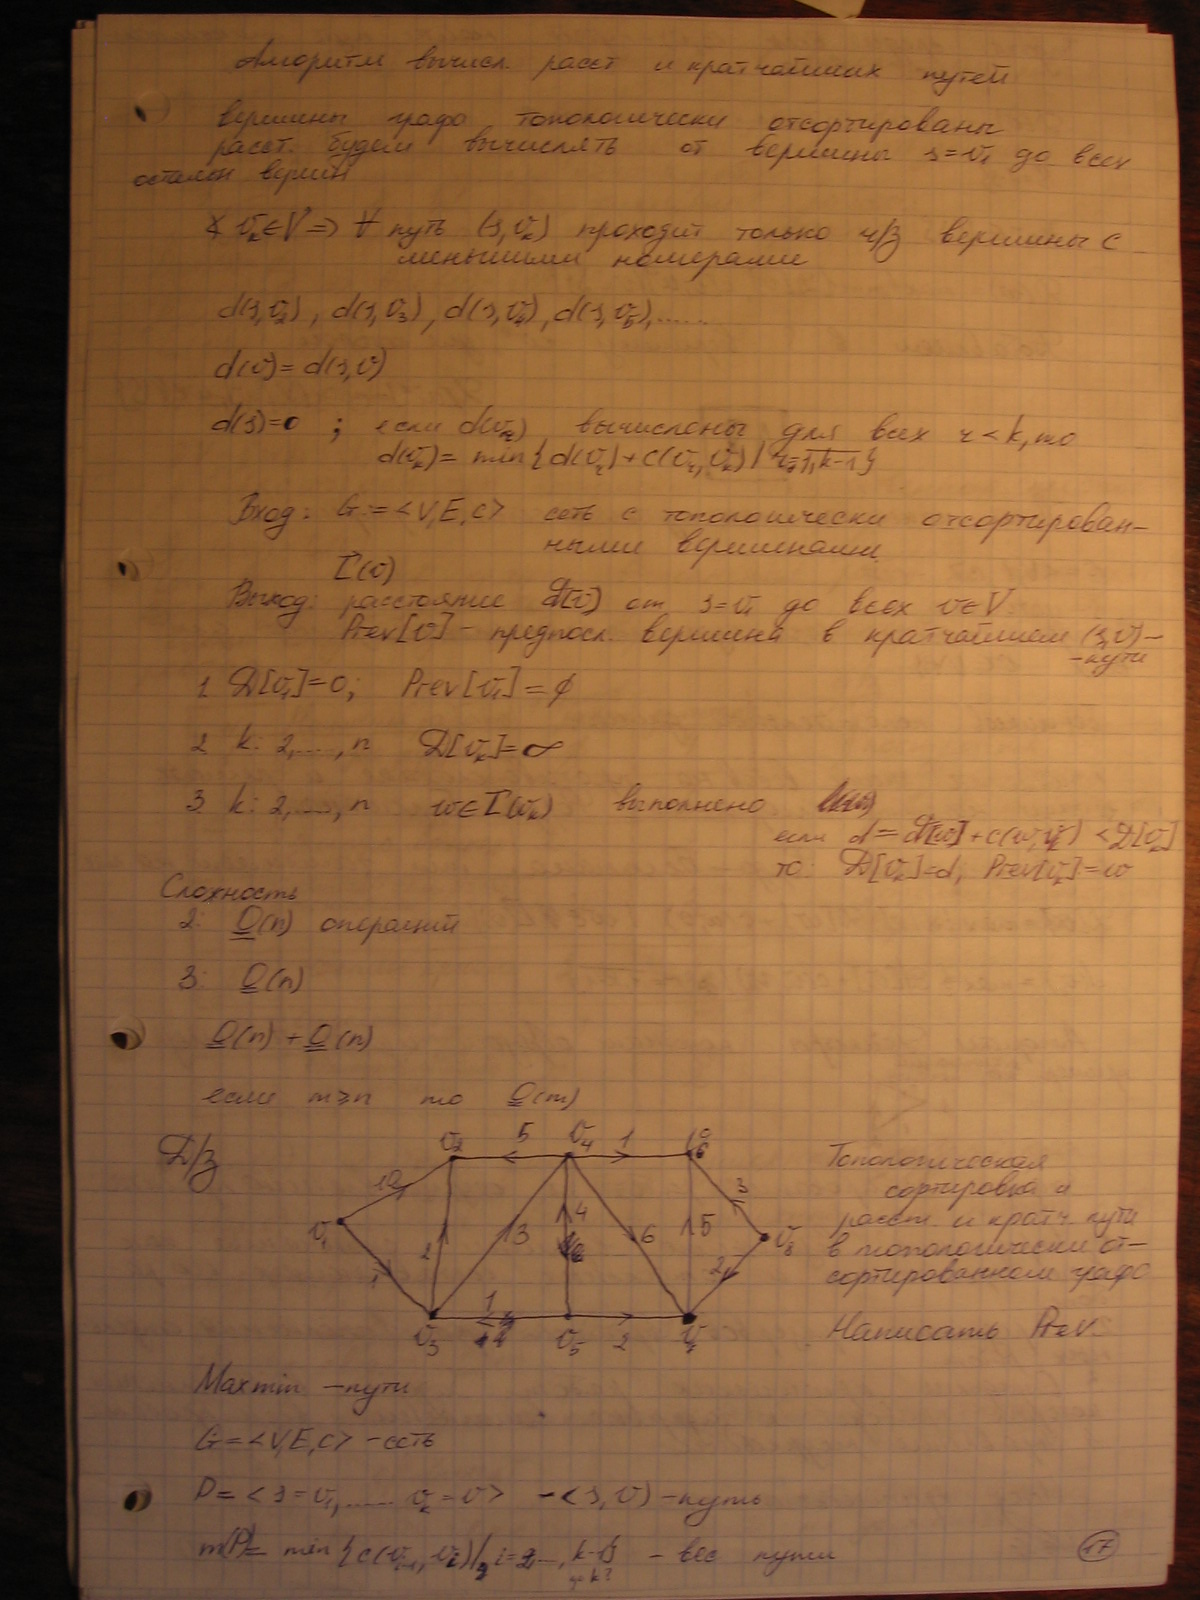 Алгоритм вычисл. расст и кратчайших путей
вершины графа топологически отсортированы
расст. будем вычислять от вершины s=v₁ до всех
осталън вершин
vₖ∈V ⇒ ∀ путь (s,vₖ) проходит только ч/з вершины с
меньшими номерами
d(s,v₂), d(s,v₃), d(s,v₄), d(s,v₅),......
d(v)=d(s,v)
d(s)=0 ; если d(vᵣ) вычислены для всех r<k, то
d(vₖ)= min{d(vᵣ)+c(vᵣ,vₖ) | r=1,k-1}
Вход: G:=<V,E,c> сеть с топологически отсортирован-
ными вершинами
Выход: расстояние D[v] от s=v₁ до всех v∈V
Prev[v] - предпосл. вершина в кратчайшем (s,v)-
-пути
1 D[v₁]=0; Prev[v₁]=∅
2 k: 2,....., n D[vₖ]=∞
3 k: 2,....., n w∈I(vₖ) выполнено
если d=D[w]+c(w,vₖ) <D[vₖ]
то: D[vₖ]=d; Prev[vₖ]=w
Сложность
2: O(n) операций
3: O(n)
O(n) + O(n)
если m≥n то O(m)
Д/з
v₂ 5 v₄ 1 6
10 3
v₁ 2 3 4 6 5 v₈
1 2
1
v₃ v₅ 2 v₇
Топологическая
сортировка и
расст. и кратч. пути
в топологически от-
сортированном графе
Написать Prev.
Maxmin -пути
G=<V,E,c> -сеть
P=<s=v₁,...... vₖ=v> -<s,v)-путь
m(P)= min{c(vᵢ₋₁,vᵢ)| i=2,..., k-1} - вес пути
до k?
17